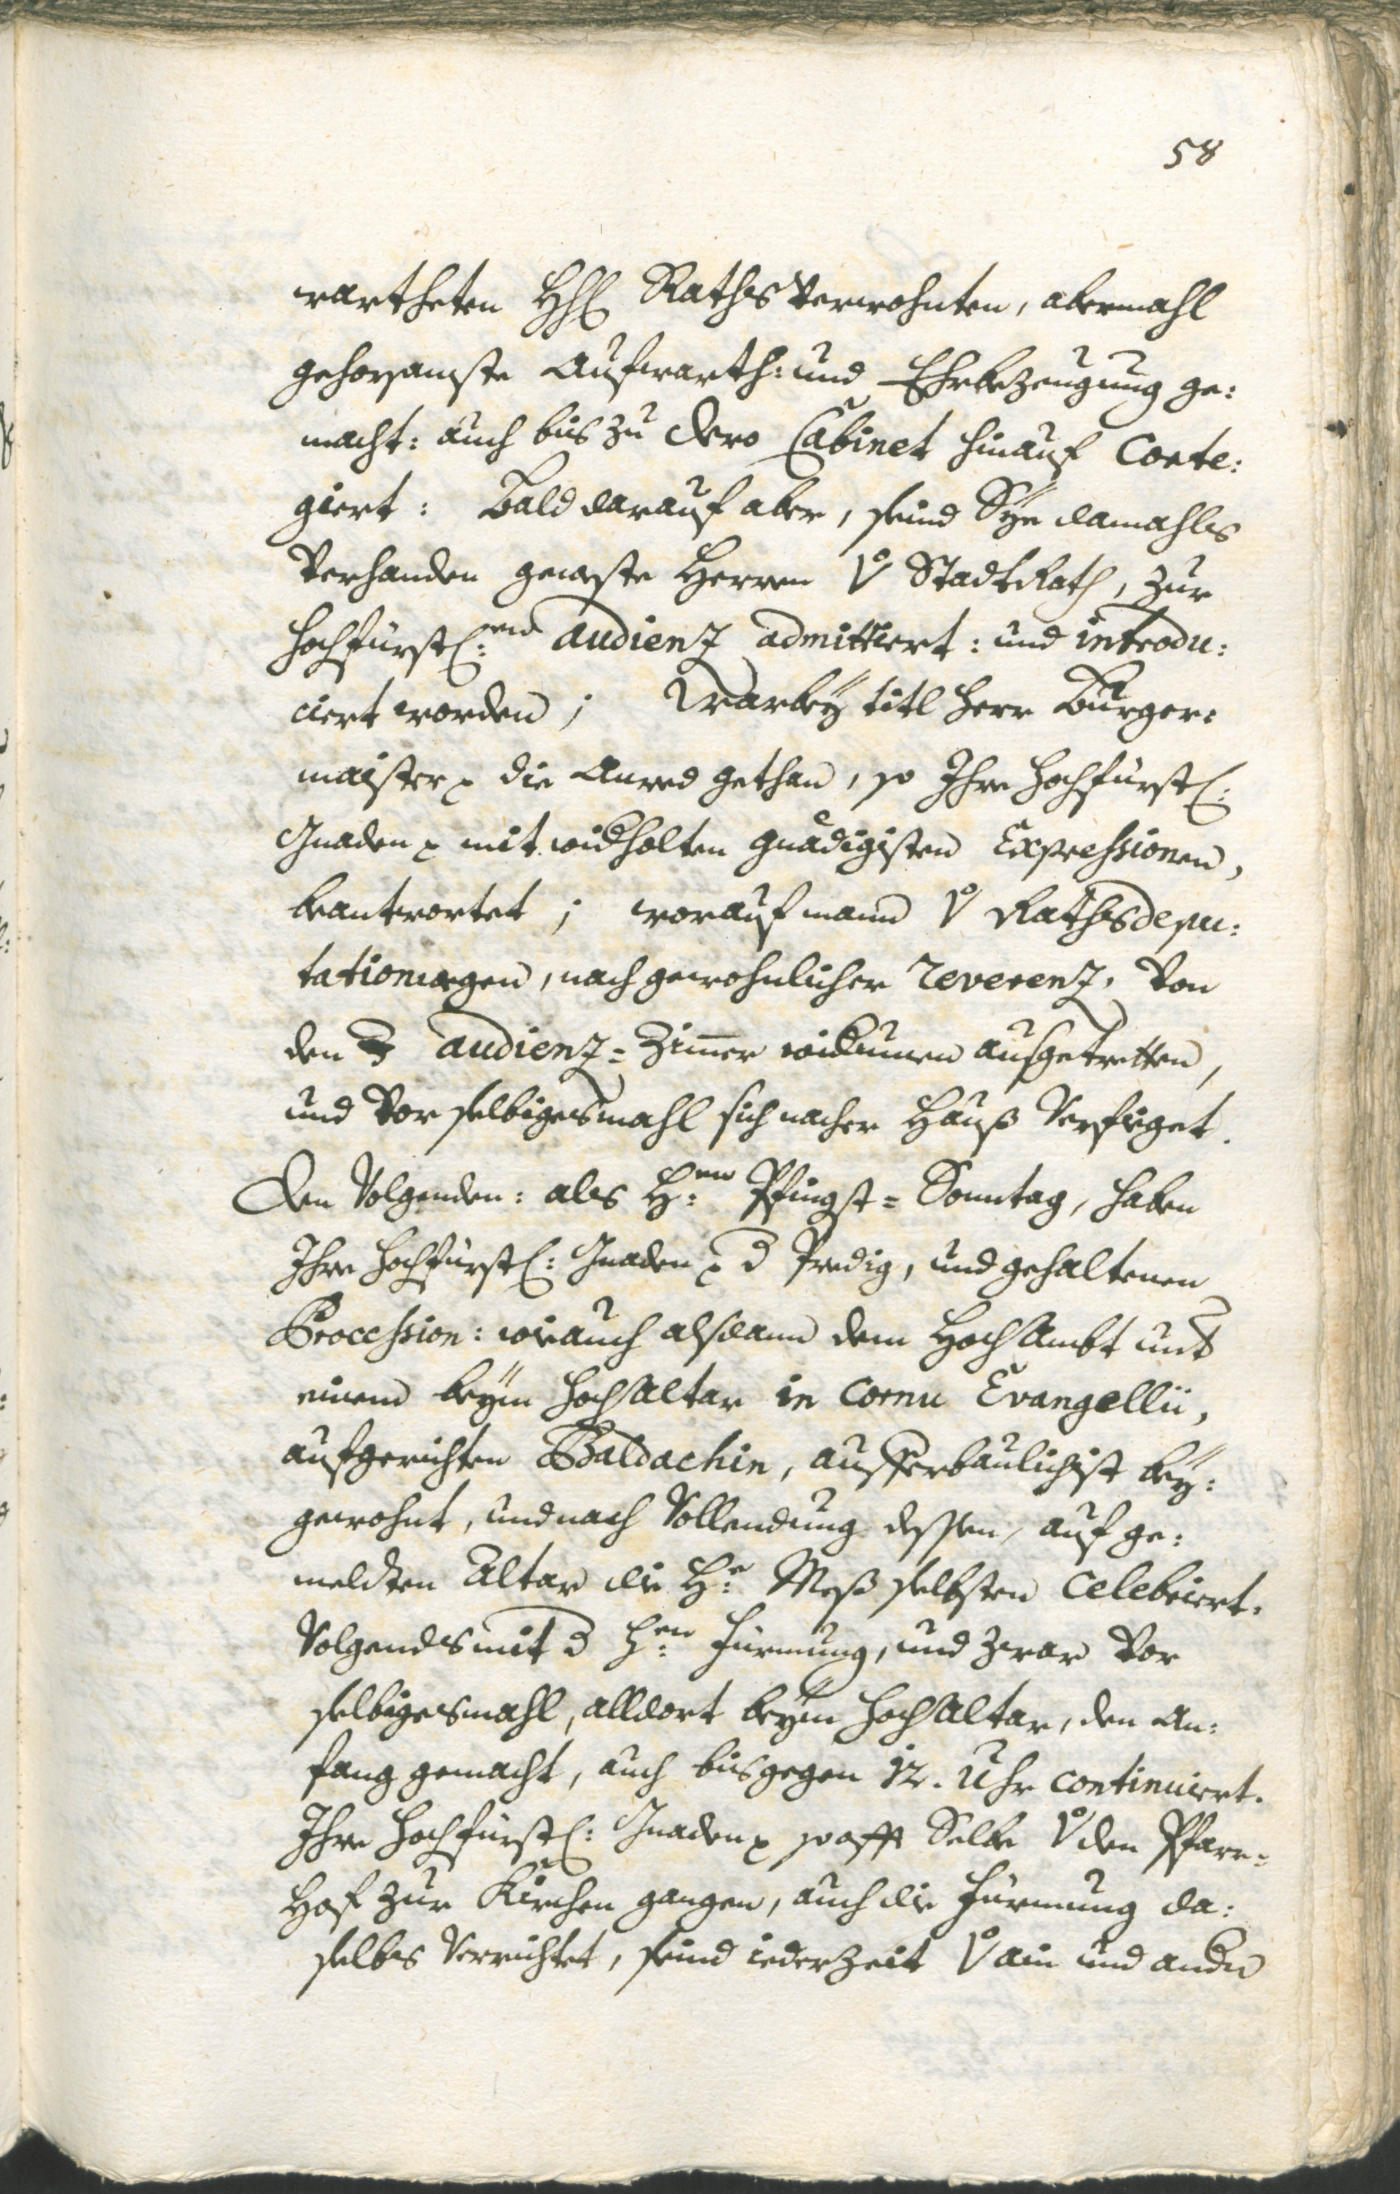 58
wartheten HH: Raths Verwohnten, abermahl
gehorsamste Aufwarth: und Ehrbezeugung ge:
macht: auch bis zu dero Cabinet hinauf Corte:
giert: Bald darauf aber, seind Sye damahls
Verhanden geweste Herren V° StadtRath, zur
hochfürstl:en audienz admittiert: und introdu:
ciert worden; Warbey titl Herr Burger:
maister die Anred gethan, so Ihre hochfürstl:
Gnaden mit widholten gnädigisten Expressionen,
beantwortet; worauf mann V° Rathsdepu:
tationwegen, nach gewohnlicher reverenz, Von
den audienz=Zimer widumen ausgetretten,
und Vor selbigesmahl sich nacher Hauß Verfüget.
Den Volgenden: als H:en Pfingst=Sonntag, haben
Ihre hochfürstl: Gnaden d Predig, und gehaltenen
Procession: wie auch alsdann dem HochAmbt mit
einem beym HochAltar in Cornu Evangellii,
aufgerichten Baldachin, aufferbaulichist bey:
gewohnt, und nach Vollendung dessen, auf ge:
meldten Altar die H:e Meß selbsten Celebriert.
Volgends mit d H:en Fürmung, und zwar Vor
selbigesmahl, alldort beym HochAltar, den An:
fang gemacht, auch bis gegen 12. Uhr continuiert.
Ihre hochfürstl: Gnaden so offt Selbe V° den Pfarr=
Hof zur Kirchen gangen, auch die Fürmung da:
selbs Verrichtet, seind iederzeit V° ain und andn